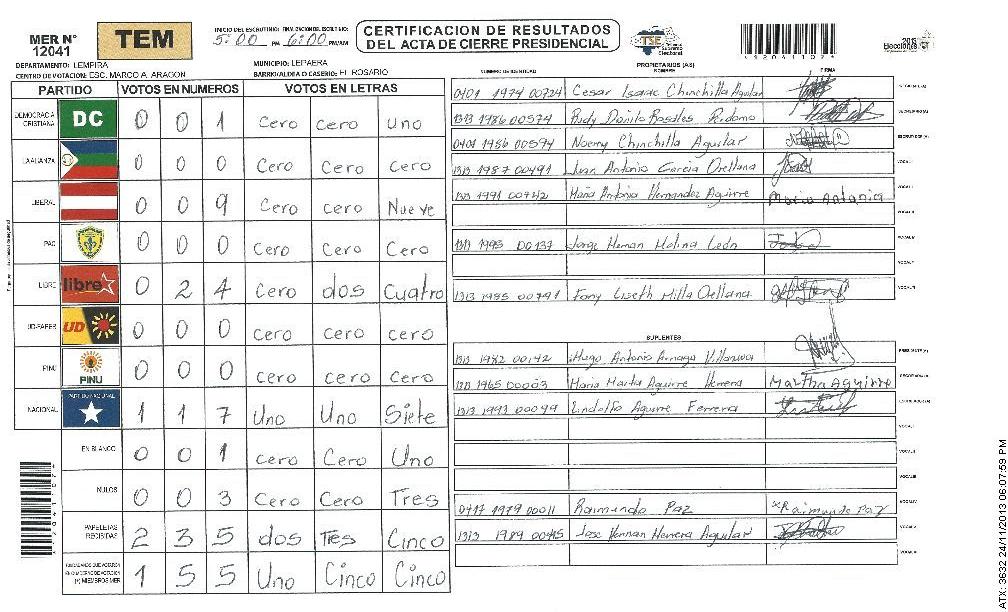 MER N° 12041
TEM
INICIO DEL ESCRUTINIO: 5:00 PM
6:00 PM/AM
CERTIFICACION DE RESULTADOS
DEL ACTA DE CIERRE PRESIDENCIAL
TSE Tribunal Supremo Electoral
2013 Elecciones
*12041107*
DEPARTAMENTO: LEMPIRA
MUNICIPIO: LEPAERA
CENTRO DE VOTACION: ESC. MARCO A. ARAGON
BARRIO/ALDEA O CASERIO: EL ROSARIO
PROPIETARIOS (AS)
NUMERO DE IDENTIDAD NOMBRE FIRMA
PARTIDO VOTOS EN NUMEROS VOTOS EN LETRAS
DEMOCRACIA CRISTIANA DC 0 0 1 Cero Cero Uno
LA ALIANZA 0 0 0 Cero Cero Cero
LIBERAL 0 0 9 Cero Cero Nueve
PAC 0 0 0 Cero Cero Cero
LIBRE libre 0 2 4 Cero dos Cuatro
UD-FAPER UD 0 0 0 Cero Cero Cero
PINU PINU 0 0 0 Cero Cero Cero
NACIONAL PARTIDO NACIONAL 1 1 7 Uno Uno Siete
EN BLANCO 0 0 1 Cero Cero Uno
NULOS 0 0 3 Cero Cero Tres
PAPELETAS RECIBIDAS 2 3 5 dos Tres Cinco
CIUDADANOS QUE VOTARON EN CUADERNO DE VOTACION (+) MIEMBROS MER 1 5 5 Uno Cinco Cinco
0401 1974 00724 Cesar Isaac Chinchilla Aguilar
1313 1986 00574 Rudy Danilo Rosales
0401 1986 00594 Noemy Chinchilla Aguilar
1313 1987 00491 Juan Antonio Garcia Orellana
1313 1991 Maria Antonia Hernandez Aguirre Maria Antonia
1313 1995 00137 Jorge Hernan Molina León
1313 1985 00791 Fany Liseth Milla Orellana
SUPLENTES
1313 1982 00142 Hugo Antonio Villanueva
1313 1965 00003 Maria Martha Aguirre Herrera Martha Aguirre
1313 1993 00099 Lindolfo Aguirre Ferrera
0417 1979 00011 Raimundo Paz Raimundo Paz
1313 1989 00145 Jose Hernan Herrera Aguilar
ATX: 3632 24/11/2013 06:07:59 PM